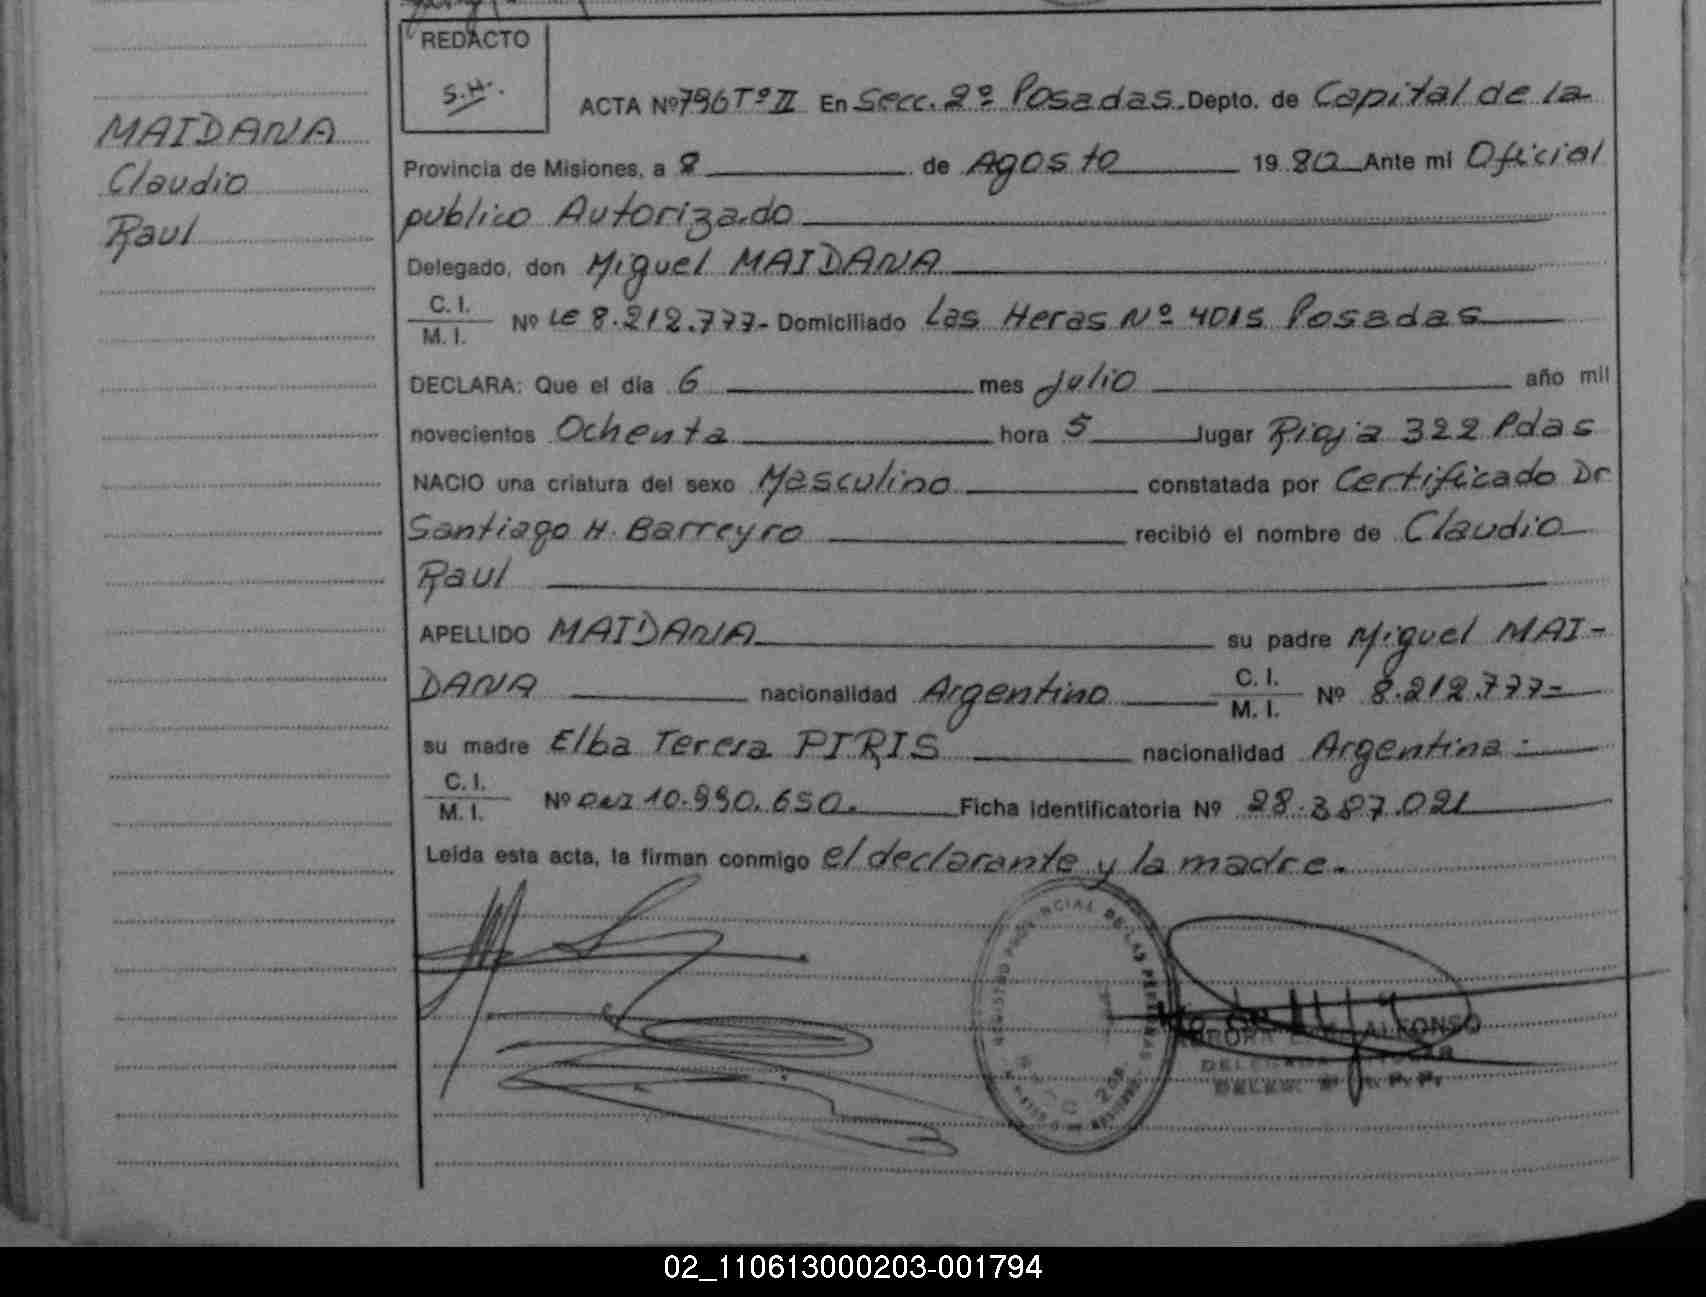 REDACTO
S.H.
MAIDANA
Claudio
Raul
ACTA Nº 796 Tº II En Secc. 2º Posadas. Depto. de Capital de la
Provincia de Misiones, a 8 de Agosto 19 80 Ante mi Oficial
publico Autorizado
Delegado, don Miguel MAIDANA
C. I.
M. I. Nº LE 8.212.777- Domiciliado Las Heras Nº 4015 Posadas
DECLARA: Que el día 6 mes Julio año mil
novecientos Ochenta hora 5 lugar Rioja 322 Pdas
NACIO una criatura del sexo Masculino constatada por Certificado Dr
Santiago H. Barreyro recibió el nombre de Claudio
Raul
APELLIDO MAIDANA su padre Miguel MAI-
DANA nacionalidad Argentino C. I.
M. I. Nº 8.212.777-
su madre Elba Teresa PIRIS nacionalidad Argentina.
C. I.
M. I. Nº DNI 10.990.650. Ficha identificatoria Nº 28.387.021
Leída esta acta, la firman conmigo el declarante y la madre.
REGISTRO PROVINCIAL DE LAS PERSONAS
ALFONSO
02_110613000203-001794